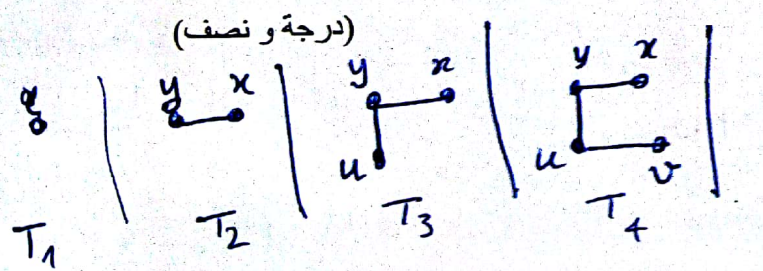 (درجة و نصف)
y x
y x
y x
u
u v
T1 T2 T3 T4